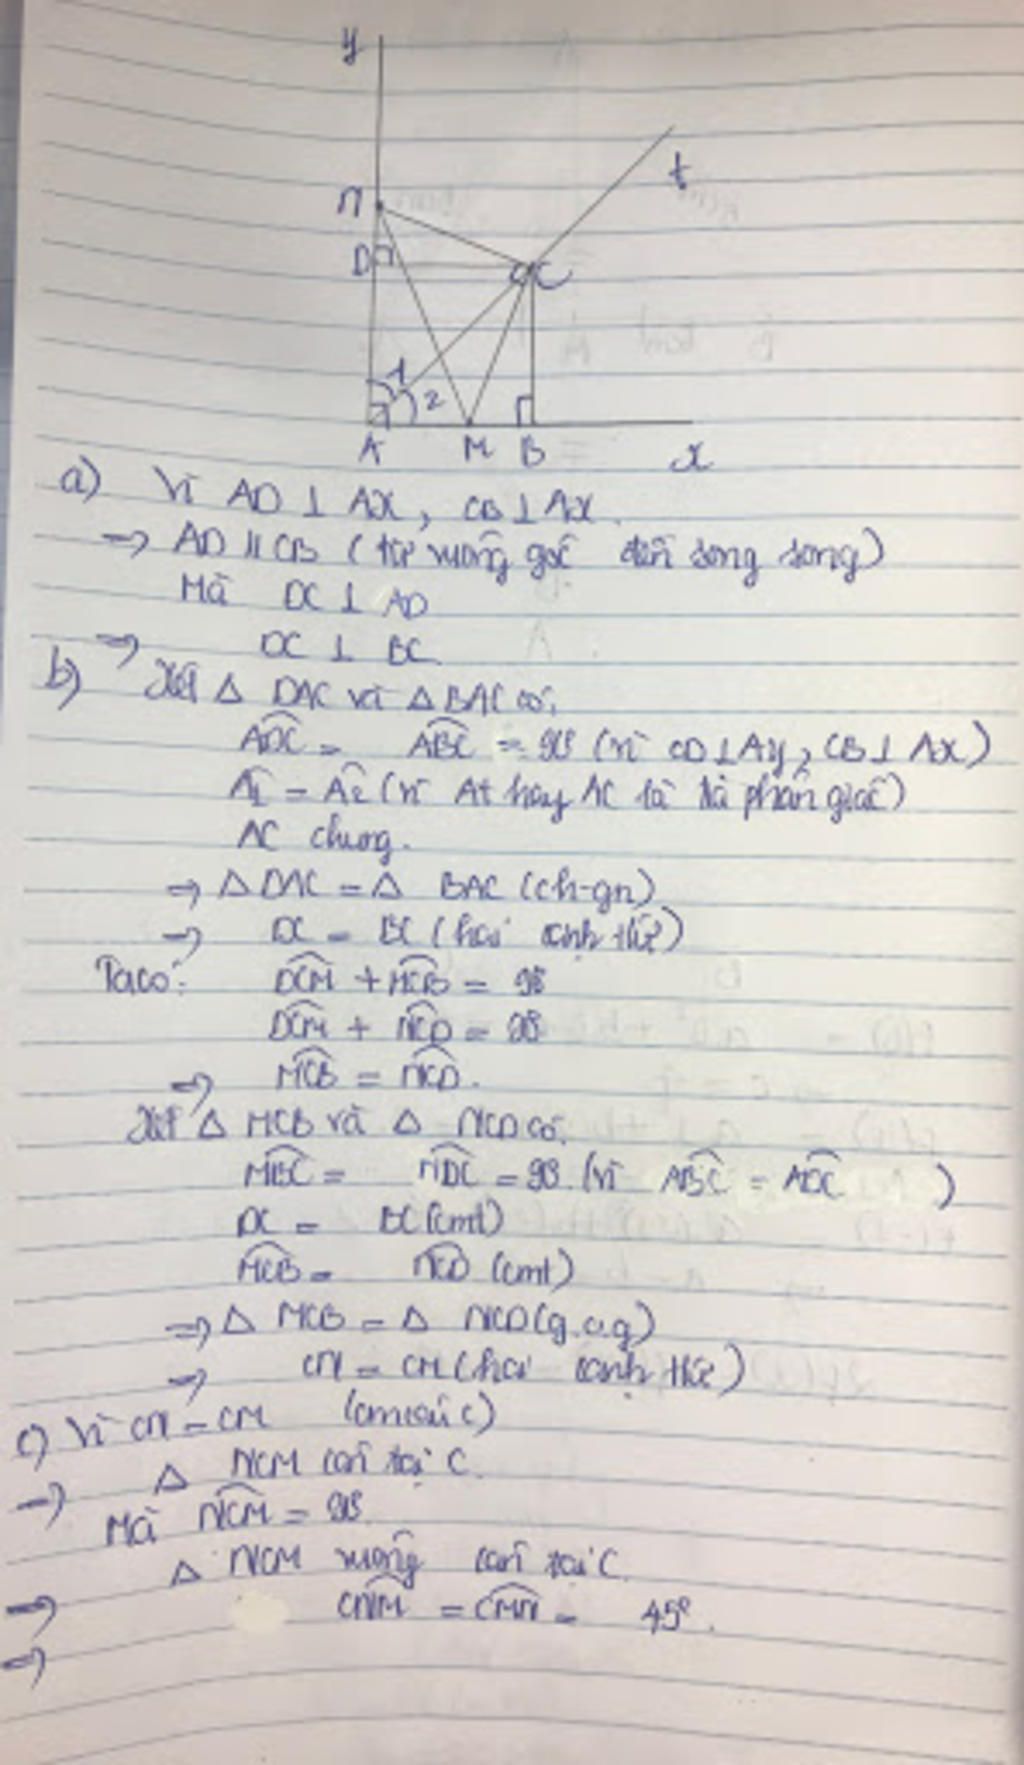 y
t
N
D
C
1
2
A M B x
a) Vì AD ⊥ Ax, CB ⊥ Ax.
⇒ AD // CB (từ vuông góc đến song song)
Mà DC ⊥ AD
⇒ DC ⊥ BC
b) Xét Δ DAC và Δ BAC có:
ADC = ABC = 90 (vì CD ⊥ Ay, CB ⊥ Ax)
A1 = A2 (vì At hay AC là tia phân giác)
AC chung.
⇒ Δ DAC = Δ BAC (ch-gn)
⇒ DC = BC (hai cạnh t/ứ)
Ta có: DCM + MCB = 90
DCM + NCD = 90
⇒ MCB = NCD.
Xét Δ MCB và Δ NCD có:
MBC = NDC = 90. (vì ABC = ADC )
DC = BC (cmt)
MCB = NCD (cmt)
⇒ Δ MCB = Δ NCD (g.c.g)
⇒ CN = CM (hai cạnh t/ứ)
c) Vì CN = CM (cm câu c)
⇒ Δ NCM cân tại C.
Mà NCM = 90.
⇒ Δ NCM vuông cân tại C.
⇒ CNM = CMN = 45°.